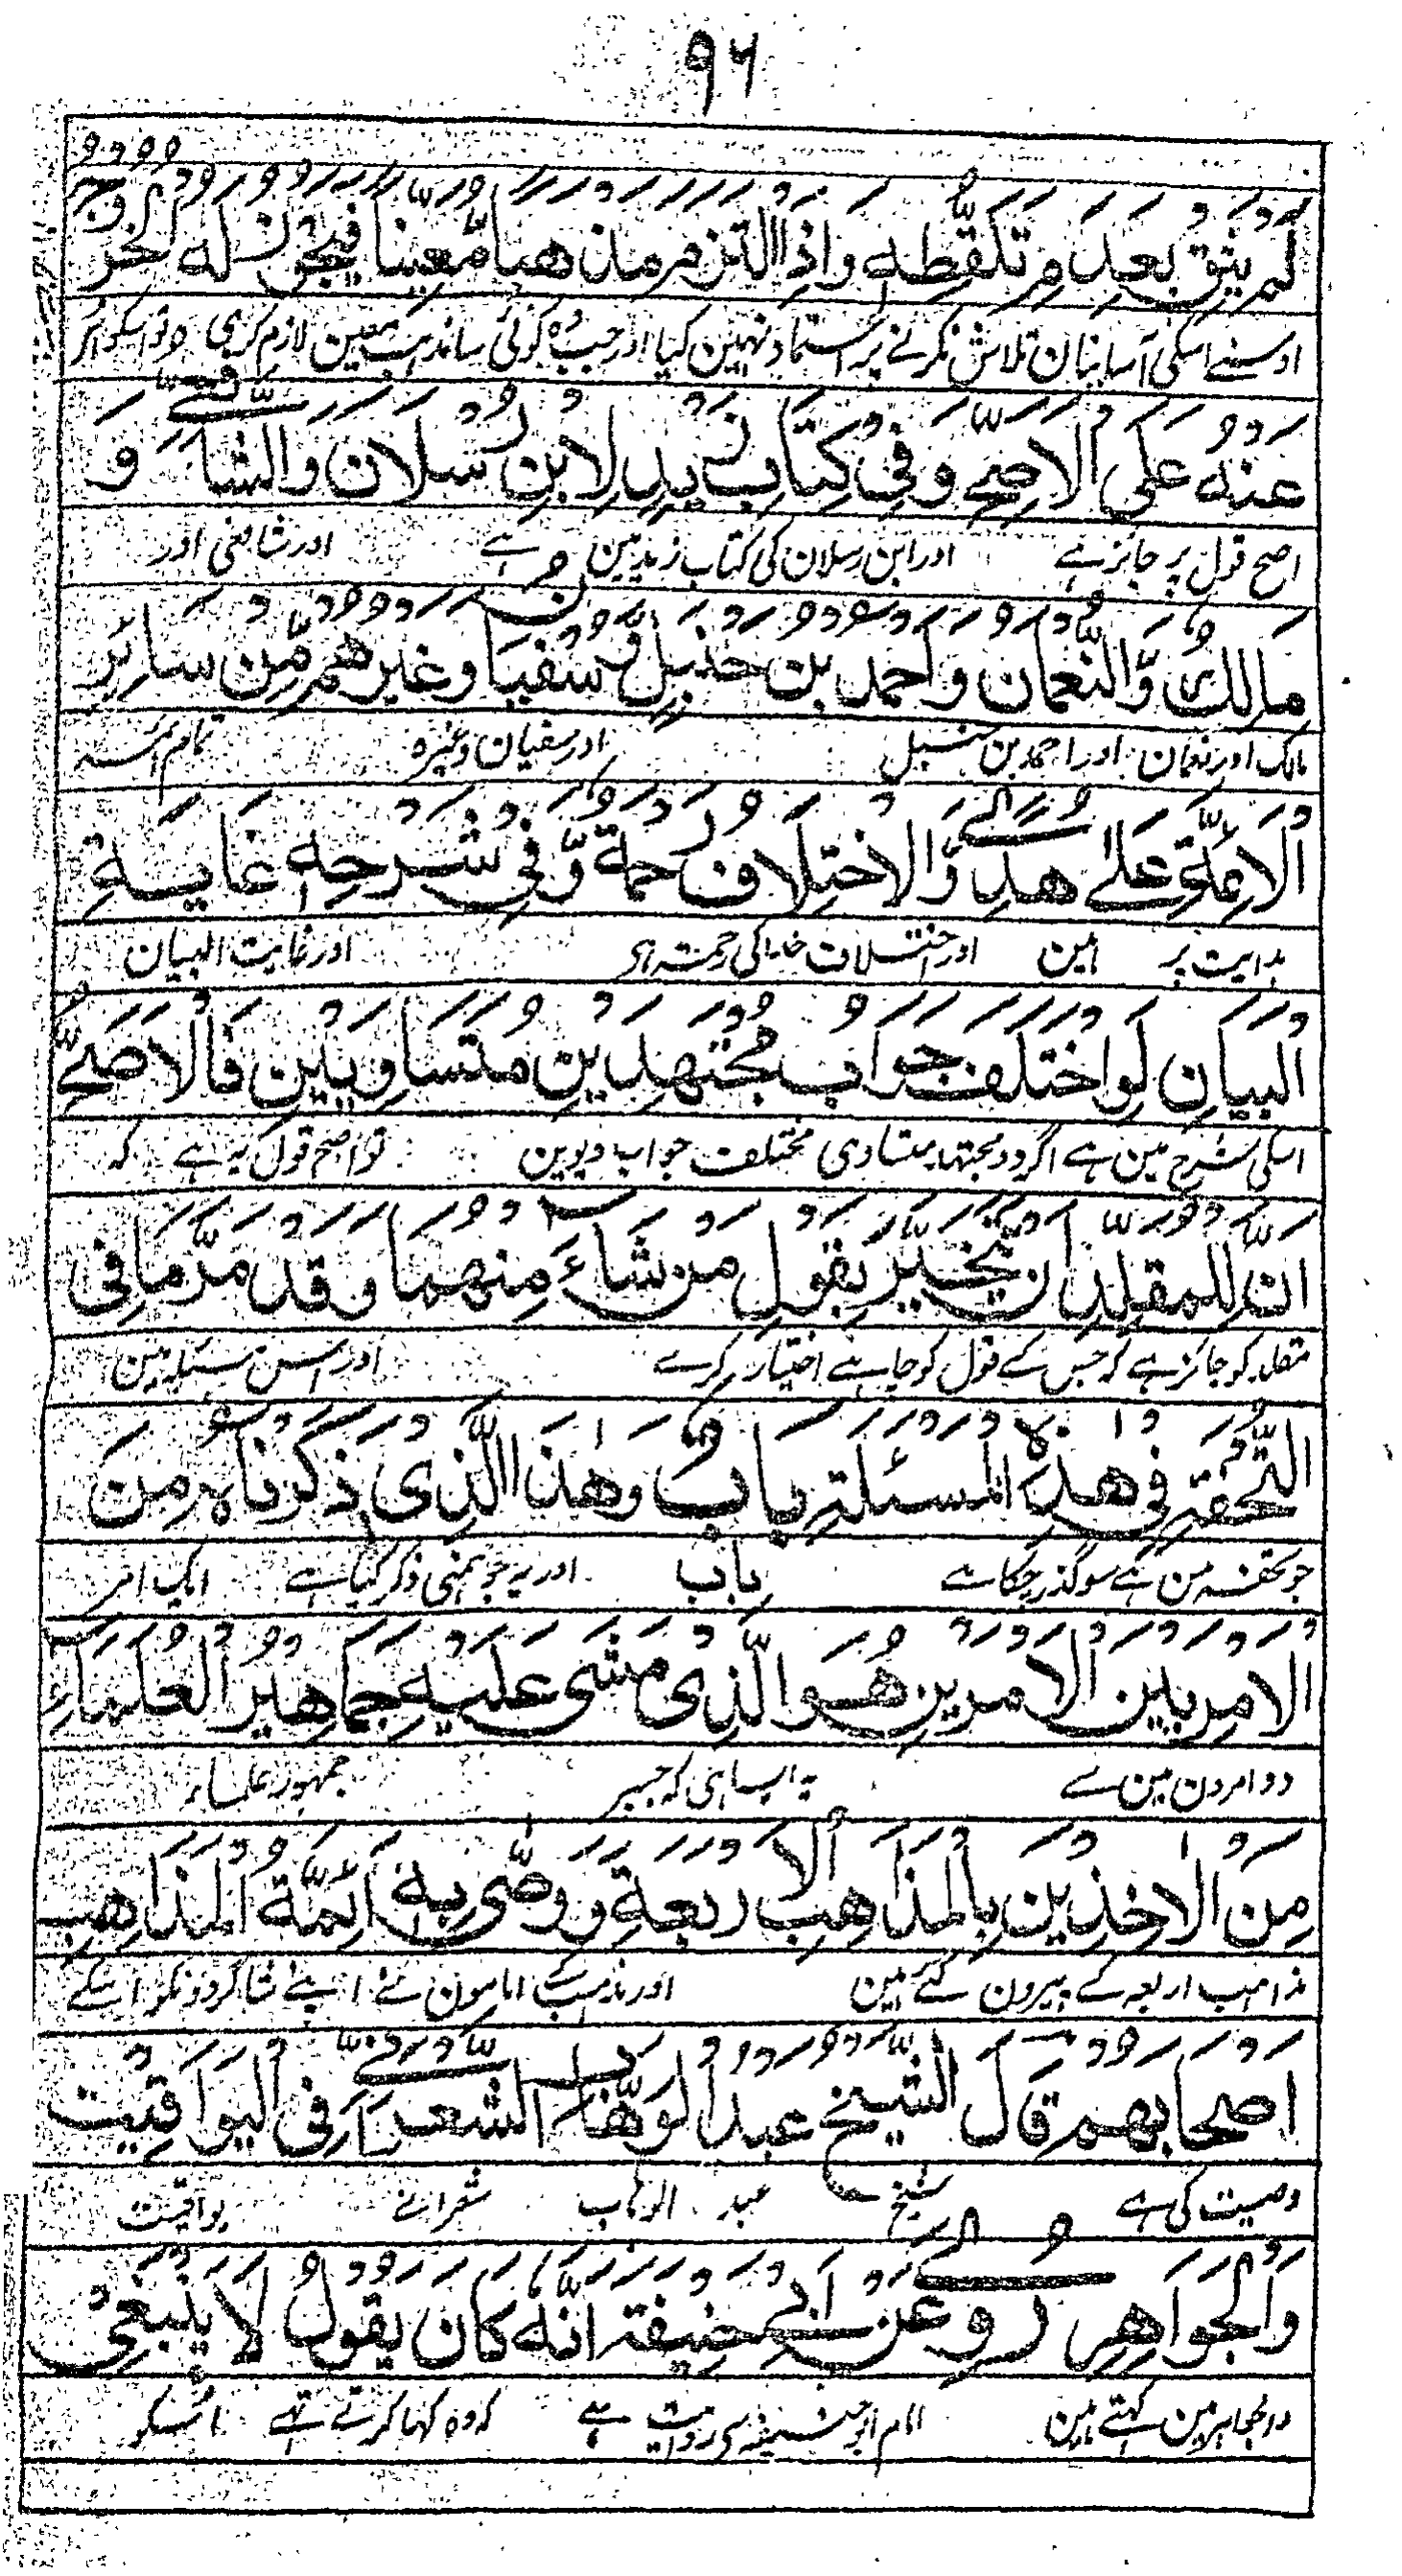 ۹۶
لَمْ يَثِقْ بَعْدَمِ تَلَقُّطِهٖ وَاِذَا الْتَزَمَ مَذْهَبًا مُّعَيَّنًا فَيَجُوْزُ لَهُ الْخُرُوْجُ
اوسنے اسکی آسانیان تلاش نکرنے پر اعتماد نہین کیا اور جب وہ کوئی سا مذہب معین لازم کرلی تو اسکو
عَنْهُ عَلَى الْاَصَحِّ وَفِيْ كِتَابِ زُبَدٍ لِابْنِ رُسْلَانَ وَالشَّافِعِيُّ وَ
اصح قول پر جائز ہے اور ابن رسلان کی کتاب زبد مین ہے اور شافعی اور
مَالِكٌ وَّالنُّعْمَانُ وَاَحْمَدُ بْنُ حَنْبَلَ وَسُفْيَانُ وَغَيْرُهُمْ مِّنْ سَائِرِ
مالک اور نعمان اور احمد بن حنبل اور سفیان وغیرہ تمام ائمہ
الْاَئِمَّةِ عَلٰى هُدًى وَّالْاِخْتِلَافُ رَحْمَةٌ وَّفِيْ شَرْحِهٖ غَايَةِ
ہدایت پر ہین اور اختلاف خدا کی رحمت ہی اور غایت البیان
الْبَيَانِ لَوِ اخْتَلَفَ جَوَابُ مُجْتَهِدَيْنِ مُتَسَاوِيَيْنِ فَالْاَصَحُّ
اسکی شرح مین ہے اگر دو مجتہد متساوی مختلف جواب دیوین تو اصح قول یہ ہے کہ
اَنَّ لِلْمُقَلِّدِ اَنْ يَّتَخَيَّرَ بِقَوْلِ مَنْ شَاءَ مِنْهُمَا وَقَدْ مَرَّ مَا فِي
مقلد کو جائز ہے کہ جس کے قول کو چاہے اختیار کرے اور اس مسئلہ مین
التُّحْفَةِ فِيْ هٰذِهِ الْمَسْئَلَةِ بَابٌ وَهٰذَا الَّذِيْ ذَكَرْنَاهُ مِنَ
جو تحفہ من ہے سو گذر چکا ہے باب اور یہ جو ہمنی ذکر کیا ہے ایک امر
الْاَمْرِ بَيْنَ الْاَمْرَيْنِ هُوَ الَّذِيْ مَشٰى عَلَيْهِ جَمَاهِيْرُ الْعُلَمَاءِ
دو امرون مین سے یہ ایسا ہی کہ جسپر جمہور علماء
مِنَ الْاٰخِذِيْنَ بِالْمَذَاهِبِ الْاَرْبَعَةِ وَوَصّٰى بِهٖ اَئِمَّةُ الْمَذَاهِبِ
مذاہب اربعہ کے پیرون گئے ہین اور مذہب کے امامون نے اپنے شاگردونکو اسکے
اَصْحَابَهُمْ قَالَ الشَّيْخُ عَبْدُ الْوَهَّابِ الشَّعْرَانِيُّ فِي الْيَوَاقِيْتِ
وصیت کی ہے شیخ عبد الوہاب شعرانے یواقیت
وَالْجَوَاهِرِ رُوِيَ عَنْ اَبِيْ حَنِيْفَةَ اَنَّهٗ كَانَ يَقُوْلُ لَا يَنْبَغِيْ
والجواہر مین کہتے ہین امام ابو حنیفہ سی روایت ہے کہ وہ کہا کرتے تہے اسکو